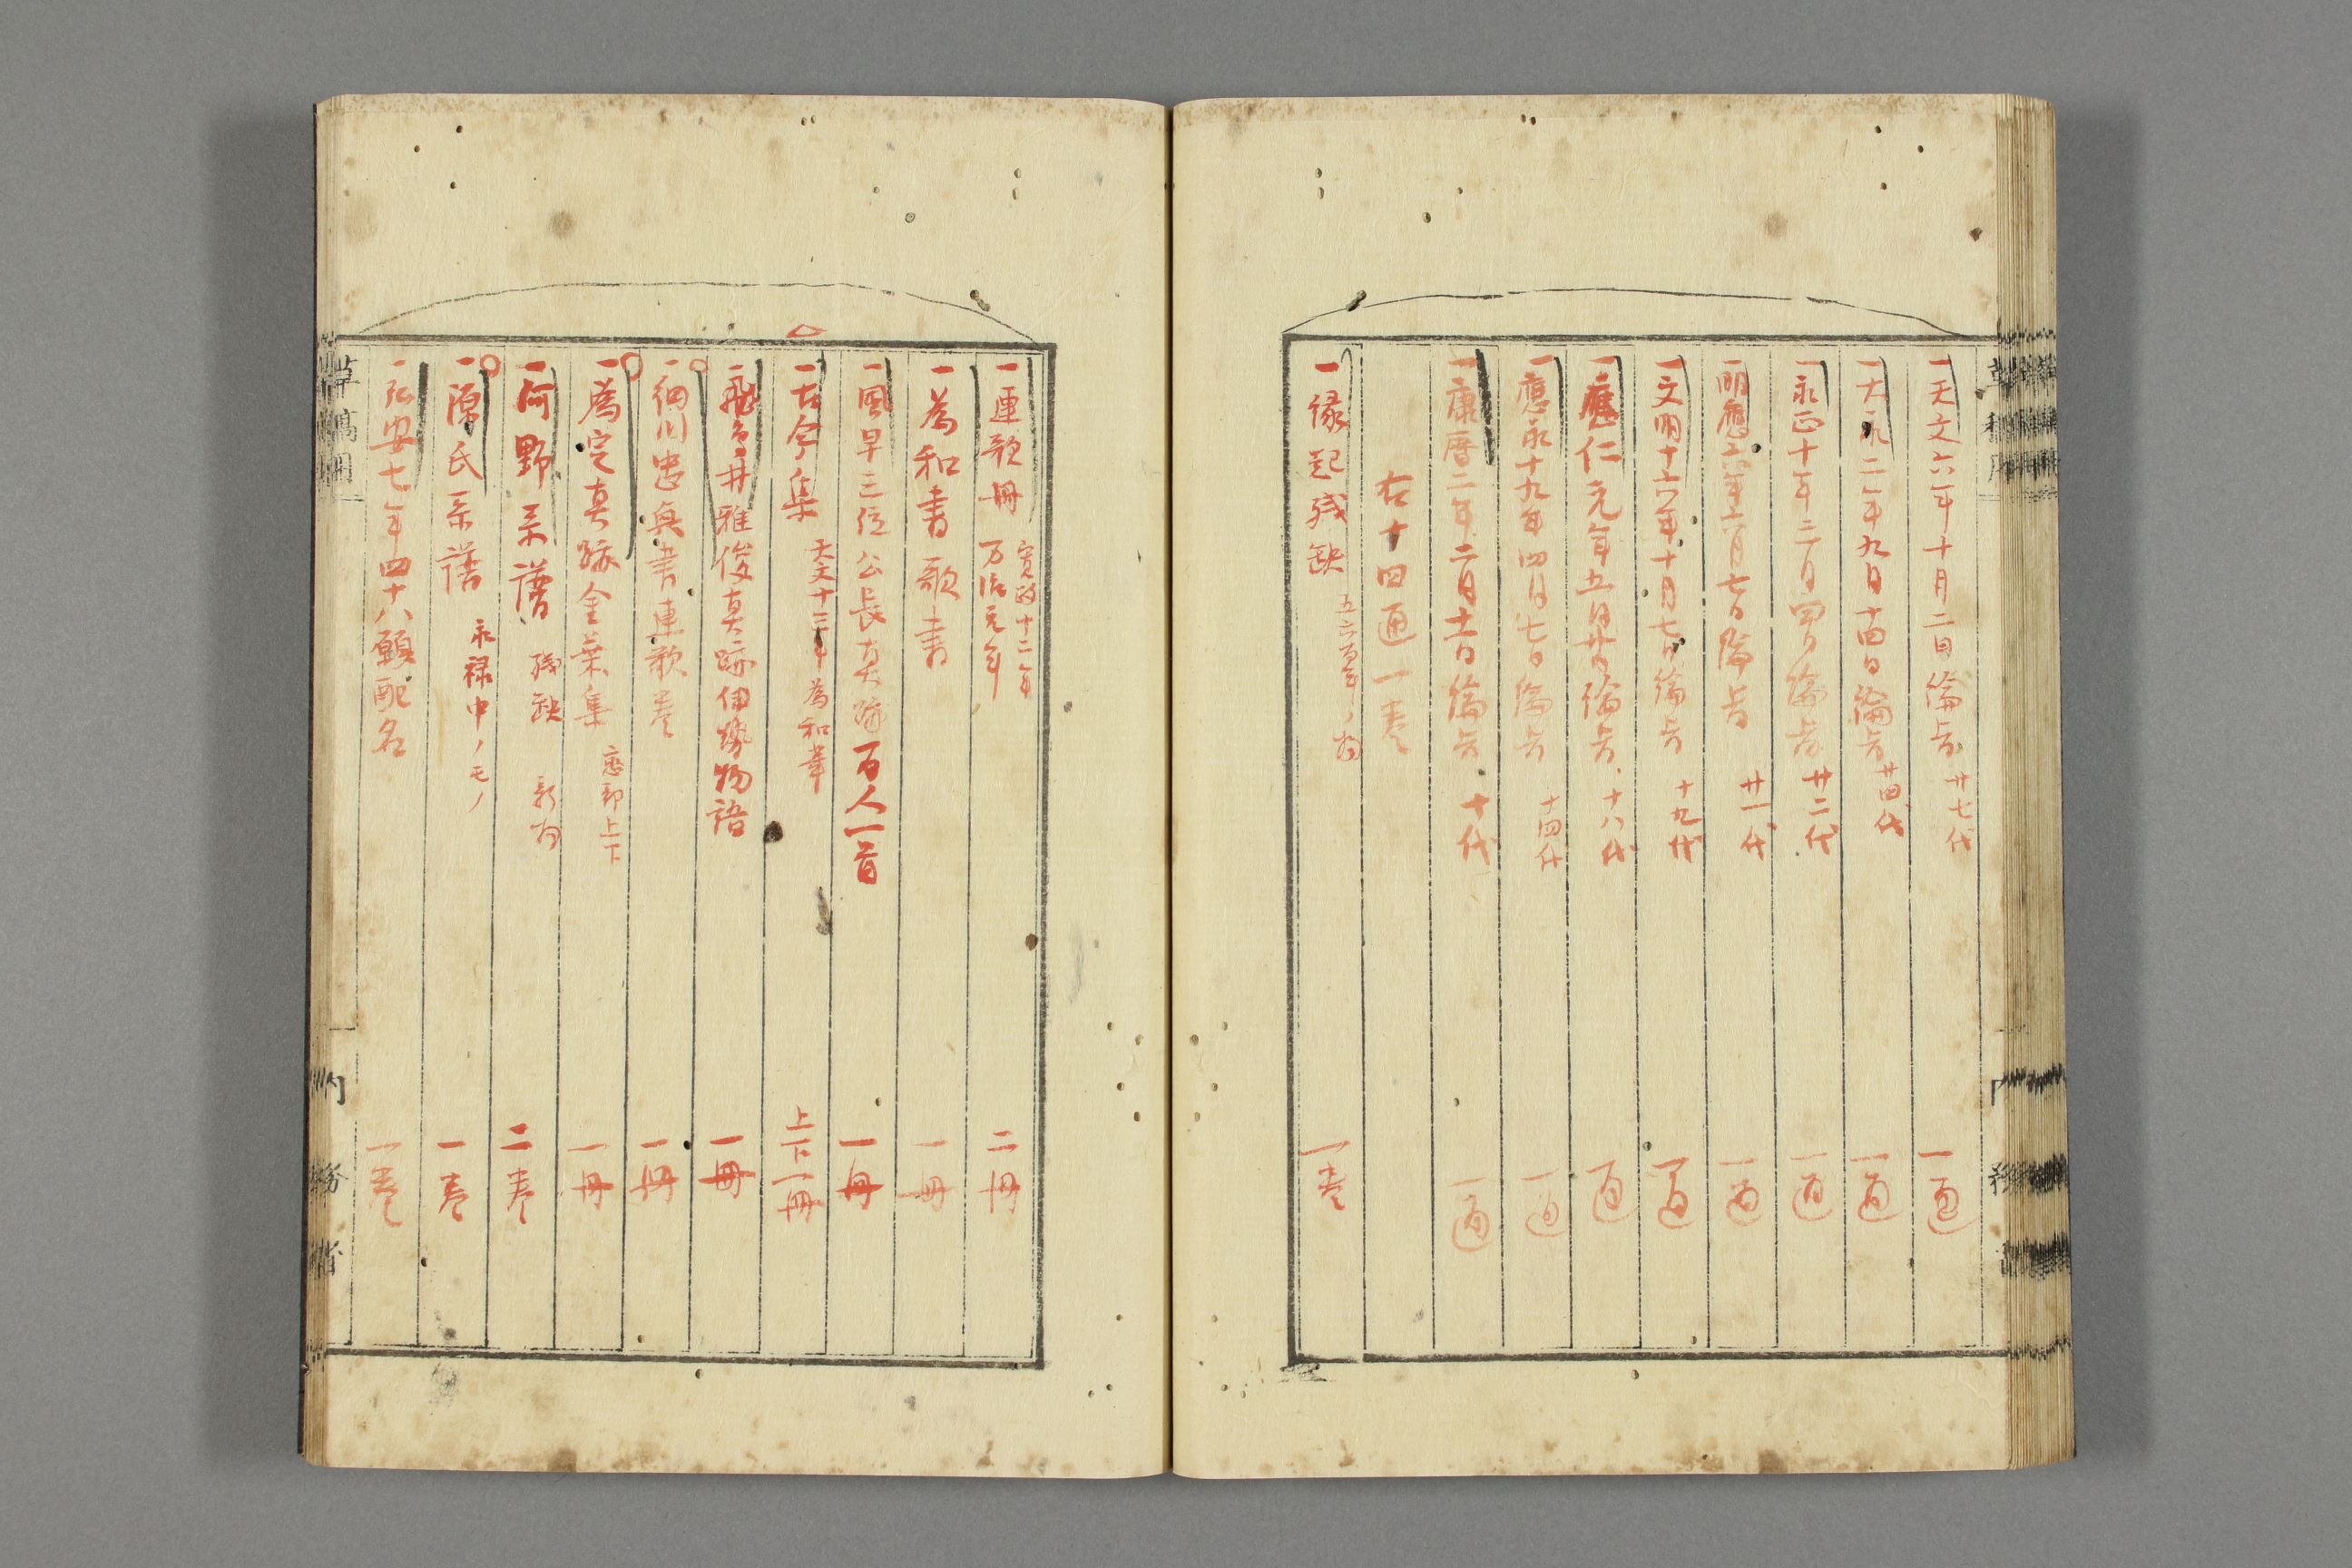 一天文六年十月二日綸旨 廿七代 一通
一大永二年九月十四日綸旨 廿四代 一通
一永正十年三月四日綸旨 廿二代 一通
一明應六年六月七日綸旨 廿一代 一通
一文明十六年十月七日綸旨 十九代 一通
一應仁元年五月廿日綸旨 十八代 一通
一應永十九年四月七日綸旨 十四代 一通
一康暦二年二月十一日綸旨 十代 一通
右十四通一巻
一縁起残缺 一巻
一連歌冊 寛政十二年 万治元年 二冊
一為和書歌書 一冊
一風早三位公長真跡百人一首 一冊
一古今集 天文十二年 為和筆 上下一冊
一飛鳥井雅俊真跡伊勢物語 一冊
一細川忠奥書連歌巻 一冊
一為定真跡金葉集 恋部上下 一冊
一河野系譜 残缺 二巻
一源氏系譜 永禄中ノモノ 一巻
一弘安七年四十八願配名 一巻
草稿用
内務省